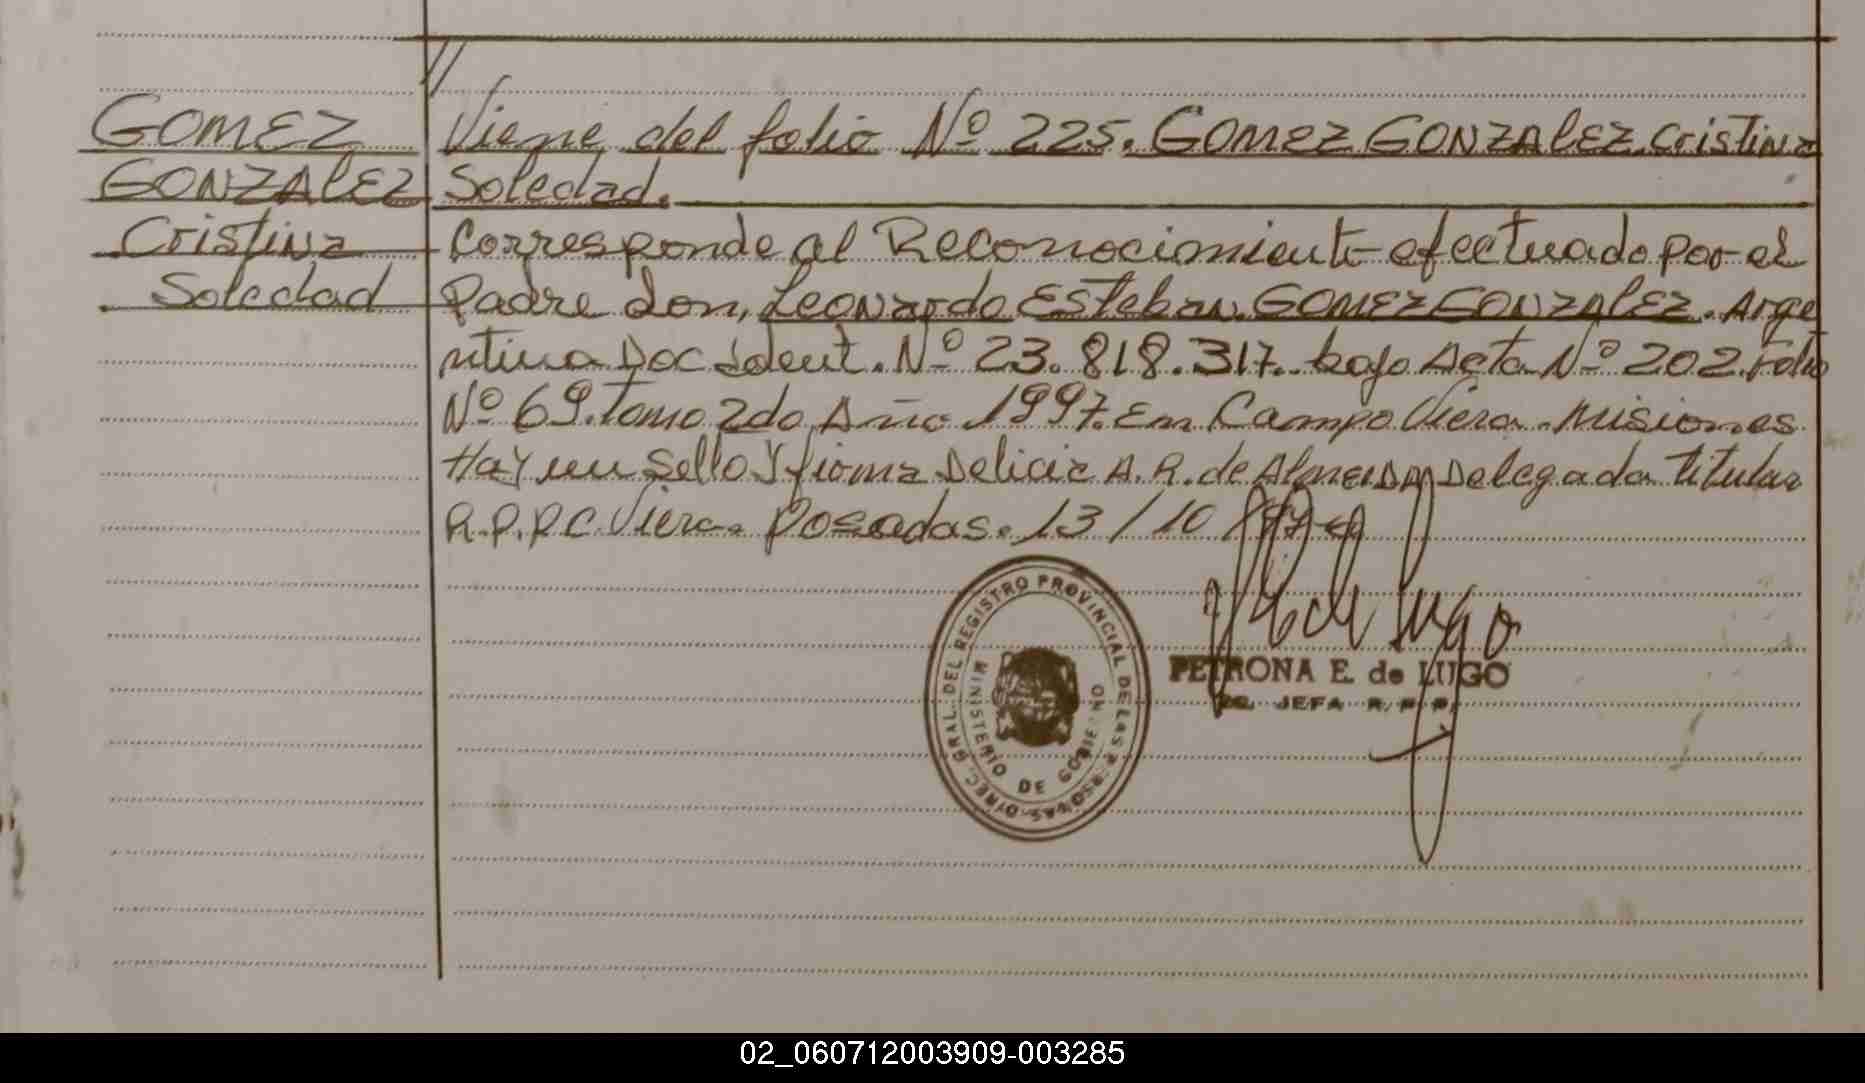 //
GOMEZ
GONZALEZ
Cristina
Soledad
Viene del folio Nº 225. GOMEZ GONZALEZ Cristina
Soledad.
Corresponde al Reconocimiento efectuado por el
Padre don, Leonardo Esteban GOMEZ GONZALEZ. Arge
ntino Doc Ident. Nº 23.818.317. bajo Acta Nº 202. Folio
Nº 69. Tomo 2do Año 1997. En Campo Viera. Misiones
Hay un Sello y firma Delicia A. R. de Almeida Delegada titular
R.P.P. C. Viera. Posadas. 13/10/97
DIREC. GRAL. DEL REGISTRO PROVINCIAL DE LAS PERSONAS
MINISTERIO DE GOBIERNO
de Lugo
PETRONA E. de LUGO
JEFA R.P.P.
02_060712003909-003285